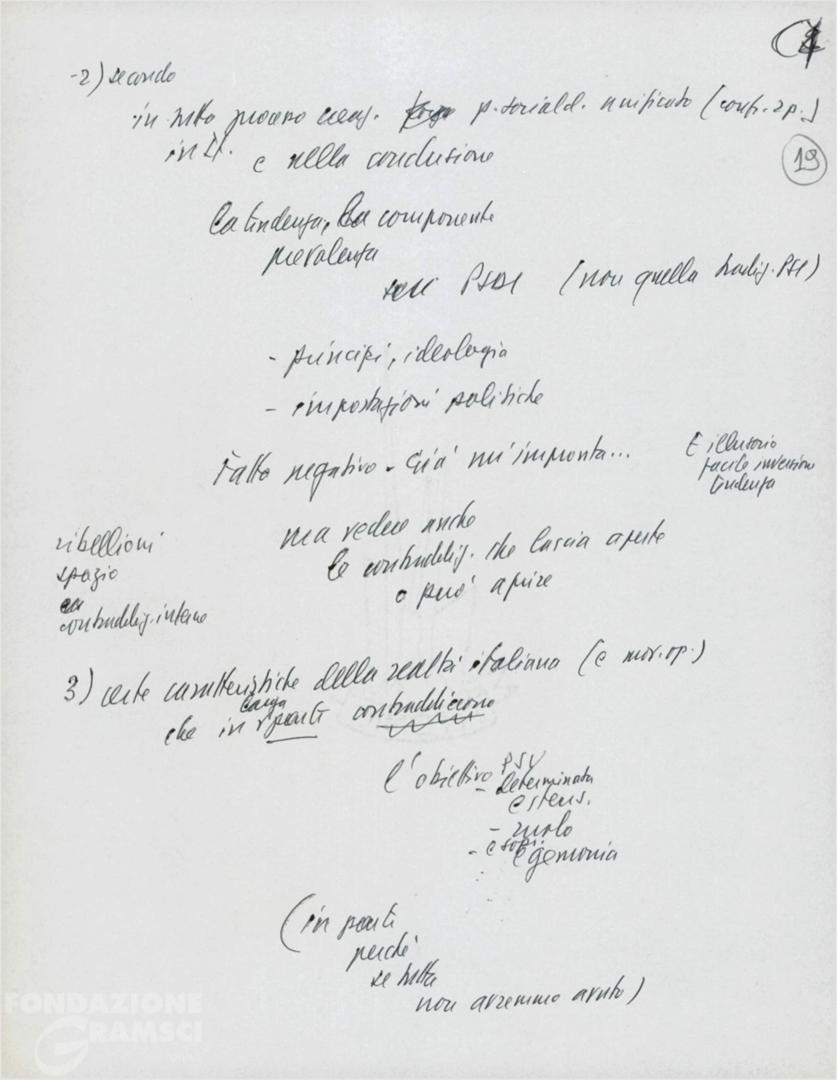 -2) secondo
in tutto processo p. sociald. unificato (conf. sp.)
in It.
e nella conclusione
19
la tendenza, la componente
prevalenza
PSDI (non quella tradiz. PSI)
- principi, ideologia
- impostazioni politiche
Fatto negativo - Già un'impronta...
È illusorio
facile inversione
tendenza
ma vedere anche
le contraddiz. che lascia aperte
o può aprire
ribellioni
spazio
contraddiz. interne
3) certe caratteristiche della realtà italiana (e mov. op.)
che in larga parte contraddicono
l'obiettivo PSU
- determinata
estens.
- ruolo
- e
egemonia
(in parte
perché
se tutta
non avremmo avuto)
FONDAZIONE
GRAMSCI